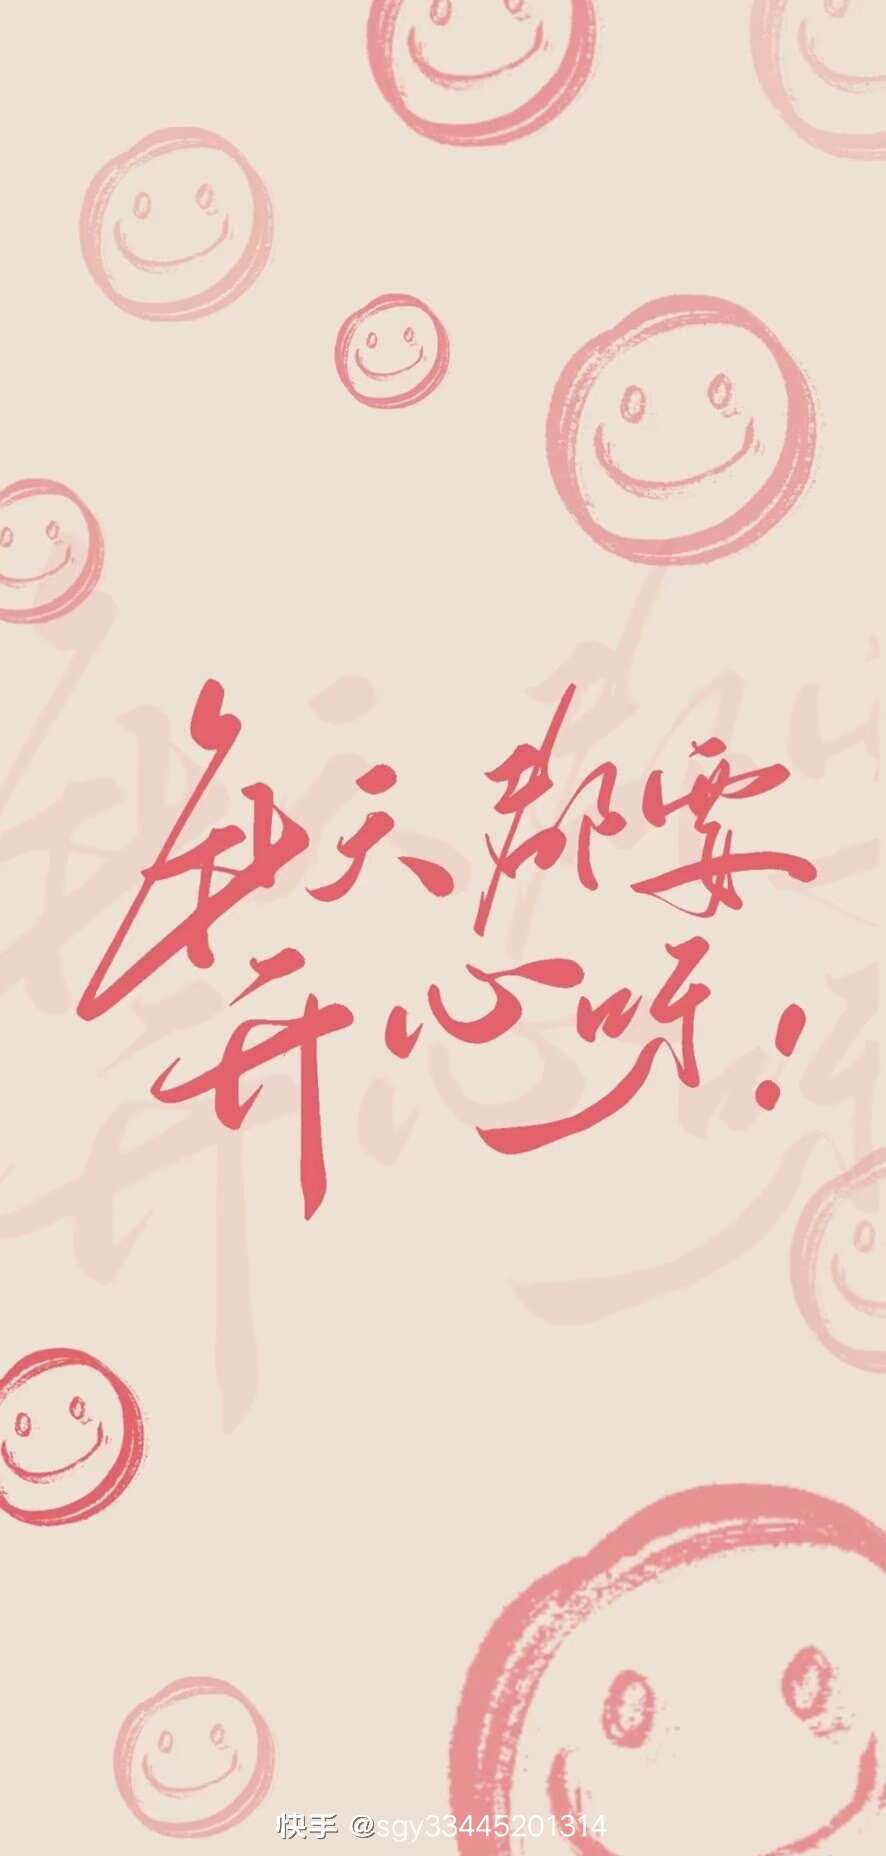 每天都要
开心呀!
快手 @sgy33445201314